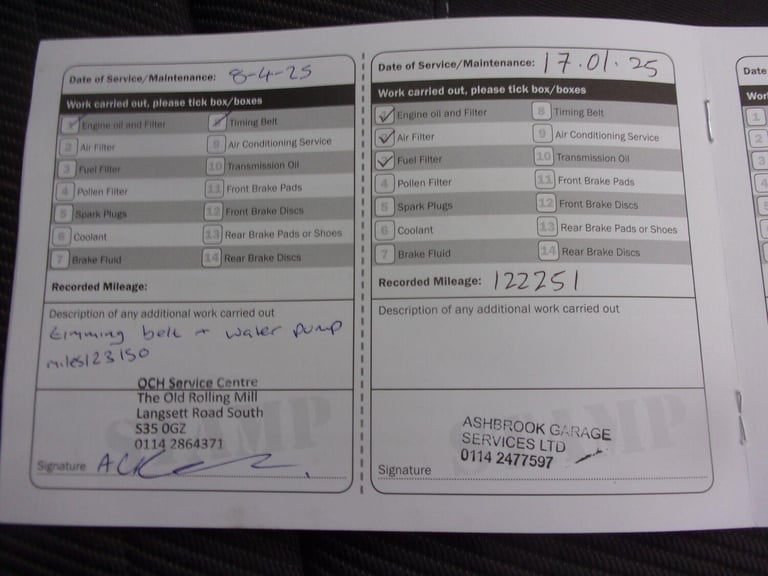 Date of Service/Maintenance: 8-4-25
Work carried out, please tick box/boxes
1 Engine oil and Filter
8 Timing Belt
2 Air Filter
9 Air Conditioning Service
3 Fuel Filter
10 Transmission Oil
4 Pollen Filter
11 Front Brake Pads
5 Spark Plugs
12 Front Brake Discs
6 Coolant
13 Rear Brake Pads or Shoes
7 Brake Fluid
14 Rear Brake Discs
Recorded Mileage:
Description of any additional work carried out
timming belt + water pump
miles123150
STAMP
OCH Service Centre
The Old Rolling Mill
Langsett Road South
S35 0GZ
0114 2864371
Signature
Date of Service/Maintenance: 17.01.25
Work carried out, please tick box/boxes
Engine oil and Filter
8 Timing Belt
Air Filter
9 Air Conditioning Service
Fuel Filter
10 Transmission Oil
4 Pollen Filter
11 Front Brake Pads
5 Spark Plugs
12 Front Brake Discs
6 Coolant
13 Rear Brake Pads or Shoes
7 Brake Fluid
14 Rear Brake Discs
Recorded Mileage: 122251
Description of any additional work carried out
STAMP
ASHBROOK GARAGE
SERVICES LTD
0114 2477597
Signature
Date
Wor
1
2
3
4